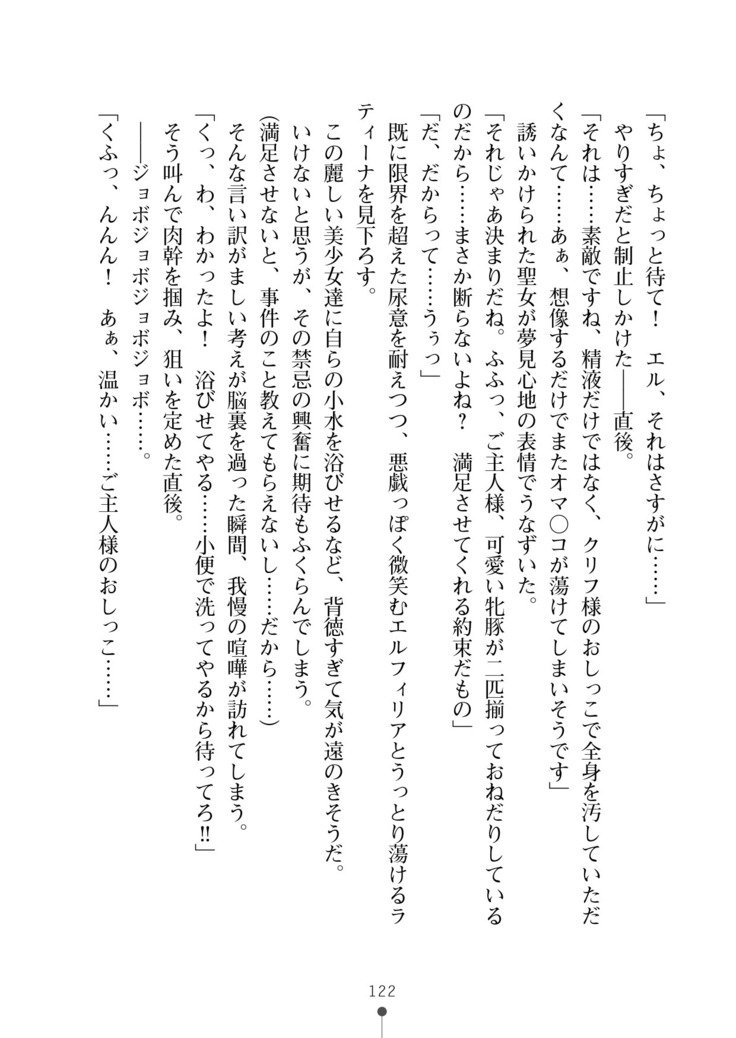 「ちょ、ちょっと待て！　エル、それはさすがに……」
やりすぎだと制止しかけた――直後。
「それは……素敵ですね、精液だけではなく、クリフ様のおしっこで全身を汚していただ
くなんて……あぁ、想像するだけでまたオマ〇コが蕩けてしまいそうです」
誘いかけられた聖女が夢見心地の表情でうなずいた。
「それじゃあ決まりだね。ふふっ、ご主人様、可愛い牝豚が二匹揃っておねだりしている
のだから……まさか断らないよね？　満足させてくれる約束だもの」
「だ、だからって……うぅっ」
既に限界を超えた尿意を耐えつつ、悪戯っぽく微笑むエルフィリアとうっとり蕩けるラ
ティーナを見下ろす。
この麗しい美少女達に自らの小水を浴びせるなど、背徳すぎて気が遠のきそうだ。
いけないと思うが、その禁忌の興奮に期待もふくらんでしまう。
(満足させないと、事件のこと教えてもらえないし……だから……)
そんな言い訳がましい考えが脳裏を過った瞬間、我慢の喧嘩が訪れてしまう。
「くっ、わ、わかったよ！　浴びせてやる……小便で洗ってやるから待ってろ!!」
そう叫んで肉幹を掴み、狙いを定めた直後。
――ジョボジョボジョボジョボ……。
「くふっ、んんん！　あぁ、温かい……ご主人様のおしっこ……」
122